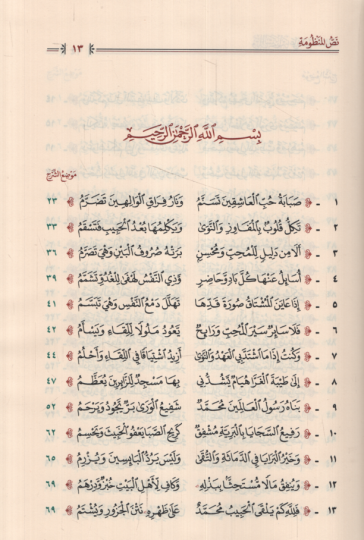 نَصُّ المَنظُومَةِ
١٣
بِسْمِ اللَّهِ الرَّحْمَٰنِ الرَّحِيمِ
مَوْضِعُ الشَّرْحِ
١ - صَبَابَةُ حُبِّ العَاشِقِينَ تَسَنَّمُ وَنَارُ فِرَاقِ الوَالِهِينَ تَضَرَّمُ ٢٣
٢ - تَكِلُّ قُلُوبٌ بِالْمَفَاوِزِ وَالنَّوَى بُعْدُ الحَبِيبِ فَتَسْقَمُ ٣٣
٣ - أَلَا مِنْ دَلِيلٍ لِلْمُحِبِّ وَمُحْسِنٍ بَرَتْهُ صُرُوفُ البَيْنِ وَهْيَ تَصَرَّمُ ٣٦
٤ - أُسَائِلُ عَنْهَا كُلَّ بَادٍ وَحَاضِرٍ وَذِي النَّفْسُ ٣٩
٥ - إِذَا عَايَنَ المُشْتَاقُ صُورَةَ قَدِّهَا تَهَلَّلَ دَمْعُ النَّفْسِ وَهْيَ تَبَسَّمُ ٤١
٦ - فَلَا سَائِرٌ سَيْرَ المُحِبِّ وَرَائِحٌ يَعُودُ مَلُولًا لِلِّقَاءِ وَيَسْأَمُ ٤٢
٧ - وَكُنْتُ إِذَا مَا اشْتَدَّ بِي العَهْدُ وَالنَّوَى أُرِيدُ اشْتِيَاقًا فِي اللِّقَاءِ وَأَحْلُمُ ٤٤
٨ - إِلَى طَيْبَةَ الغَرَّا هُيَامٌ يَشُدُّنِي بِهَا مَسْجِدٌ لِلزَّائِرِينَ يُعَظَّمُ ٤٧
٩ - بَنَاهُ رَسُولُ العَالَمِينَ مُحَمَّدٌ شَفِيعُ الوَرَى بَرٌّ يَجُودُ وَيَرْحَمُ ٥٢
١٠ - رَفِيعُ السَّجَايَا بِالبَرِيَّةِ مُشْفِقٌ كَرِيمُ يَعْفُو ٦٢
١١ - وَخَيْرُ البَرَايَا فِي الدَّمَاثَةِ وَالتُّقَى وَلَيْسَ يَرُدُّ البَائِسِينَ ٦٥
١٢ - وَيُنفِقُ مَالًا مُسْتَحِثًّا بِبَذْلِهِ وَكَافٍ لِأَهْلِ البَيْتِ خُبْزٌ وَدِرْهَمُ ٦٩
١٣ - فَلِلَّهِ كَمْ يَلْقَى الحَبِيبُ مُحَمَّدٌ عَلَى ظَهْرِهِ نَتْنَ الجَزُورِ وَيُشْتَمُ ٦٩